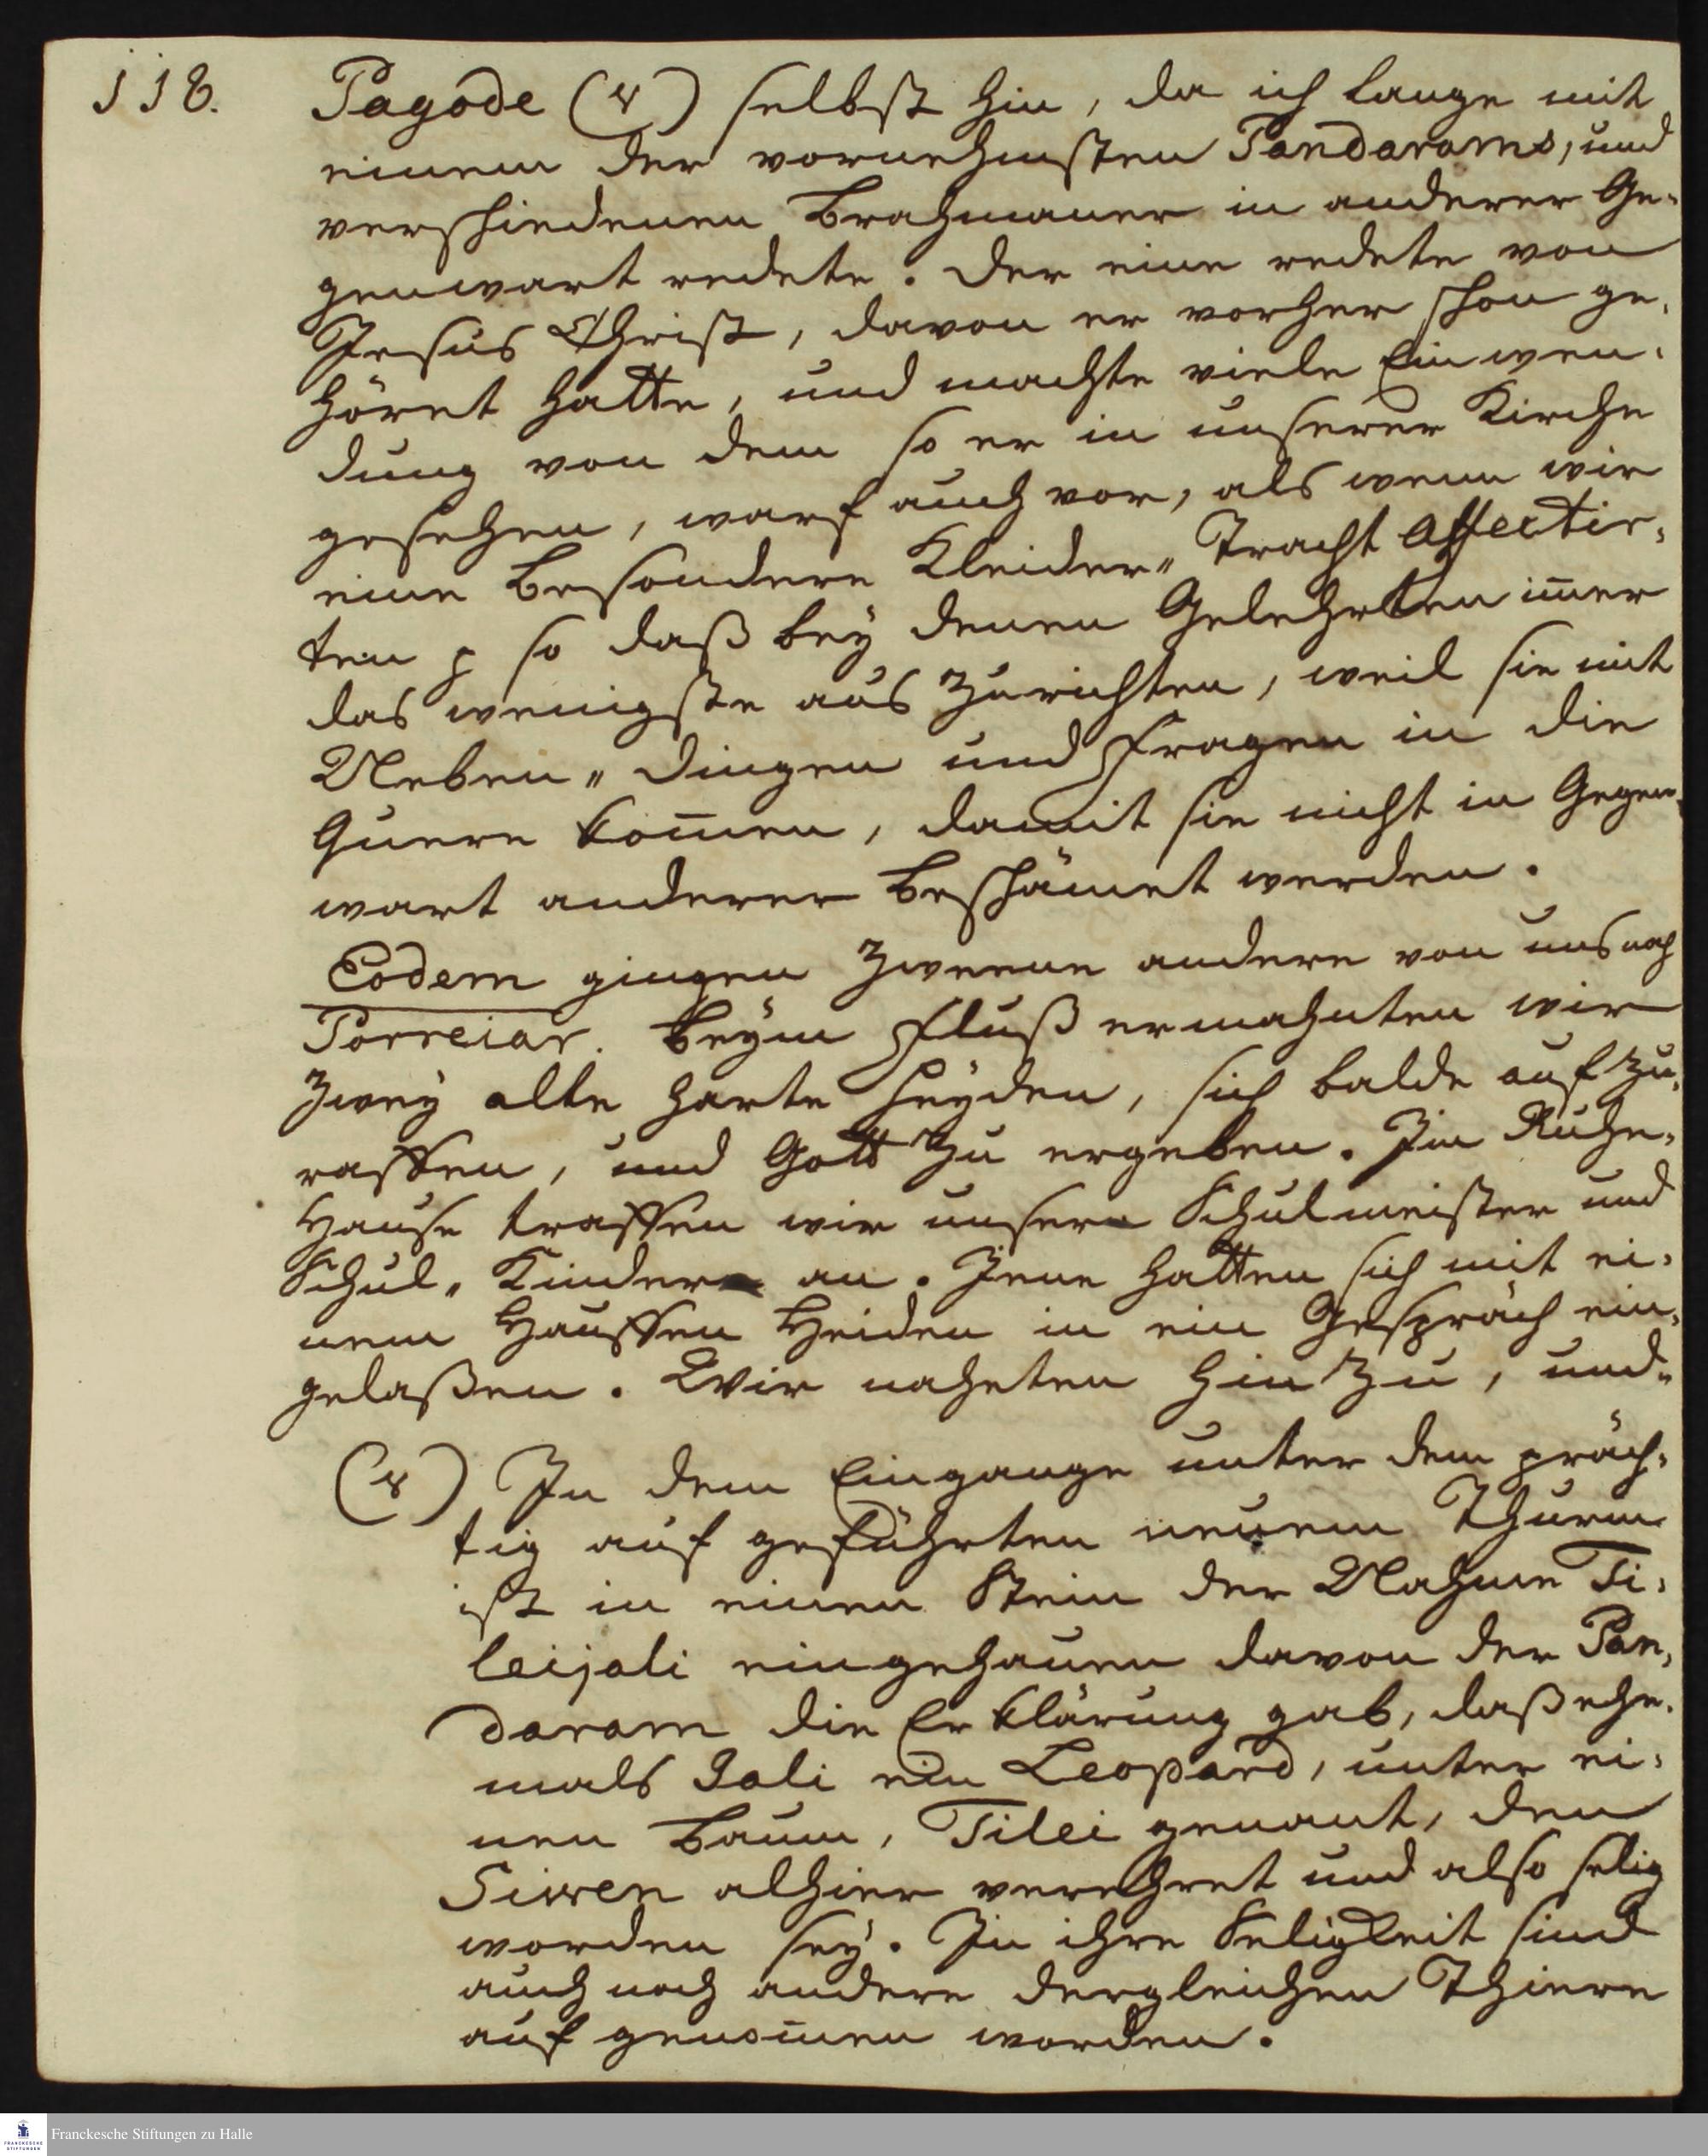 118.
Pagode (x) selbst hin, da ich lange mit
einem der vornehmsten Pandarams, und
verschiedenen Brahmaner in anderer Ge-
genwart redete. Der eine redete von
Jesus Christ, davon er vorher schon ge-
höret hatte, und machte viele Einwen-
dung von dem so er in unserer Kirche
gesehen, warf auch vor, als wenn wir
eine besondere Kleider-Tracht affectir-
ten p so daß bey denen Gelehrten im̅er
das wenigste aus zurichten, weil sie mit
Neben-Dingen und Fragen in die
Quere kom̅en, damit sie nicht in Gegen-
wart anderer beschämet werden.
Eodem gingen Zweene andere von uns nach
Porreiar. Beym Fluß ermahnten wir
Zwey alte harte Heyden, sich balde auf zu-
raffen, und Gott zu ergeben. Im Ruhe-
Hause traffen wir unsere Schulmeister und
Schul-Kinder an. Jene hatten sich mit ei-
nem Hauffen Heiden in ein Gespräch ein-
gelaßen. Wir naheten hin zu, und
(x) In dem Eingange unter dem präch-
tig auf geführten neuem Thurm
ist in einen Stein der Nahme Ti-
leijali eingehauen davon der Pan-
daram die Erklärung gab, daß ehe-
mals Jali ein Leopard, unter ei-
nen Baum, Tilei genant, den
Siwen alhier verehret und also selig
worden sey. In ihre Seligkeit sind
auch noch andere dergleichen Thiere
auf genom̅en worden.
Franckesche Stiftungen zu Halle